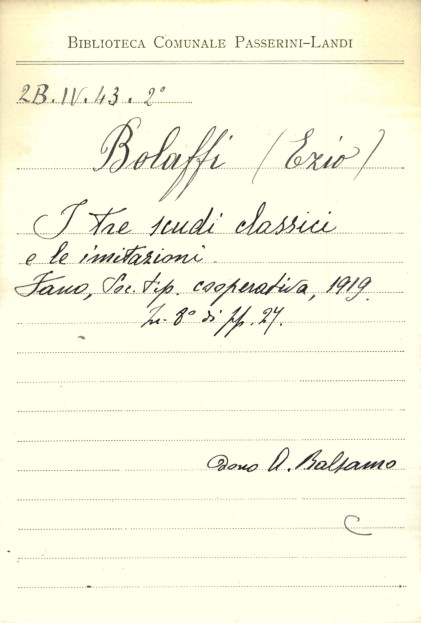 BIBLIOTECA COMUNALE PASSERINI-LANDI
2B.IV.43.2°
Bolaffi (Ezio)
I tre scudi classici
e le imitazioni.
Fano, Soc. tip. cooperativa, 1919.
In-8° di pp. 27.
dono A. Balsamo
C